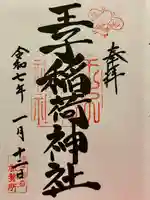 奉拝
王子稲荷神社
令和七年一月十一日